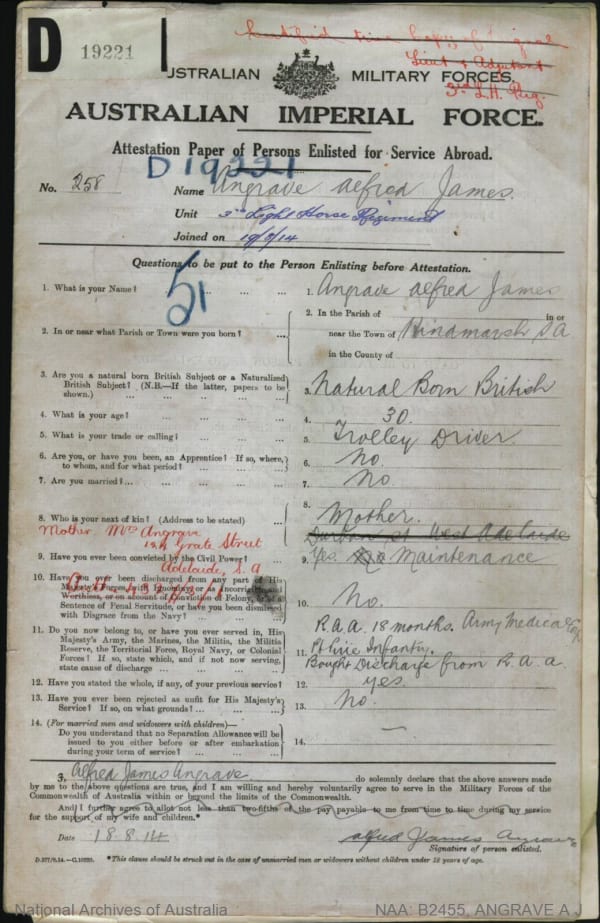 D 19221
Certified true copy of original
Lieut & Adjutant
3rd L.H. Reg.
AUSTRALIAN MILITARY FORCES.
AUSTRALIAN IMPERIAL FORCE.
Attestation Paper of Persons Enlisted for Service Abroad.
D19221
No. 258 Name Angrave Alfred James.
Unit 3rd Light Horse Regiment
Joined on 19/8/14
Questions to be put to the Person Enlisting before Attestation.
51
1. What is your Name? ... ... ... 1. Angrave Alfred James
2. In or near what Parish or Town were you born? ... 2. In the Parish of in or
near the Town of Hindmarsh SA
in the County of
3. Are you a natural born British Subject or a Naturalized
British Subject? (N.B.—If the latter, papers to be
shown.) 3. Natural Born British
4. What is your age? 4. 30.
5. What is your trade or calling? 5. Trolley Driver.
6. Are you, or have you been, an Apprentice? If so, where,
to whom, and for what period? 6. No.
7. Are you married? 7. No.
8. Who is your next of kin? (Address to be stated) 8. Mother.
Mother Mrs Angrave
124 Grate Street
Adelaide, S.A
West Adelaide
9. Have you ever been convicted by the Civil Power? 9. Yes. No Maintenance
10. Have you ever been discharged from any part of His
Majesty's Forces, with Ignominy, or as Incorrigible and
Worthless, or on account of Conviction of Felony, or of a
Sentence of Penal Servitude, or have you been dismissed
with Disgrace from the Navy? 10. No.
11. Do you now belong to, or have you ever served in, His
Majesty's Army, the Marines, the Militia, the Militia
Reserve, the Territorial Force, Royal Navy, or Colonial
Forces? If so, state which, and if not now serving,
state cause of discharge 11. R.A.A. 18 months. Army Medical
Infantry.
Bought Discharge from R.A.A.
12. Have you stated the whole, if any, of your previous service? 12. yes.
13. Have you ever been rejected as unfit for His Majesty's
Service? If so, on what grounds? 13. No.
14. (For married men and widowers with children)—
Do you understand that no Separation Allowance will be
issued to you either before or after embarkation
during your term of service? 14. —
I, Alfred James Angrave do solemnly declare that the above answers made
by me to the above questions are true, and I am willing and hereby voluntarily agree to serve in the Military Forces of the
Commonwealth of Australia within or beyond the limits of the Commonwealth.
And I further agree to allot not less than two-fifths of the pay payable to me from time to time during my service
for the support of my wife and children.*
Date 18.8.14 Alfred James Angrave
Signature of person enlisted.
D.377/9.14.—C.10320. *This clause should be struck out in the case of unmarried men or widowers without children under 18 years of age.
National Archives of Australia NAA: B2455, ANGRAVE A J